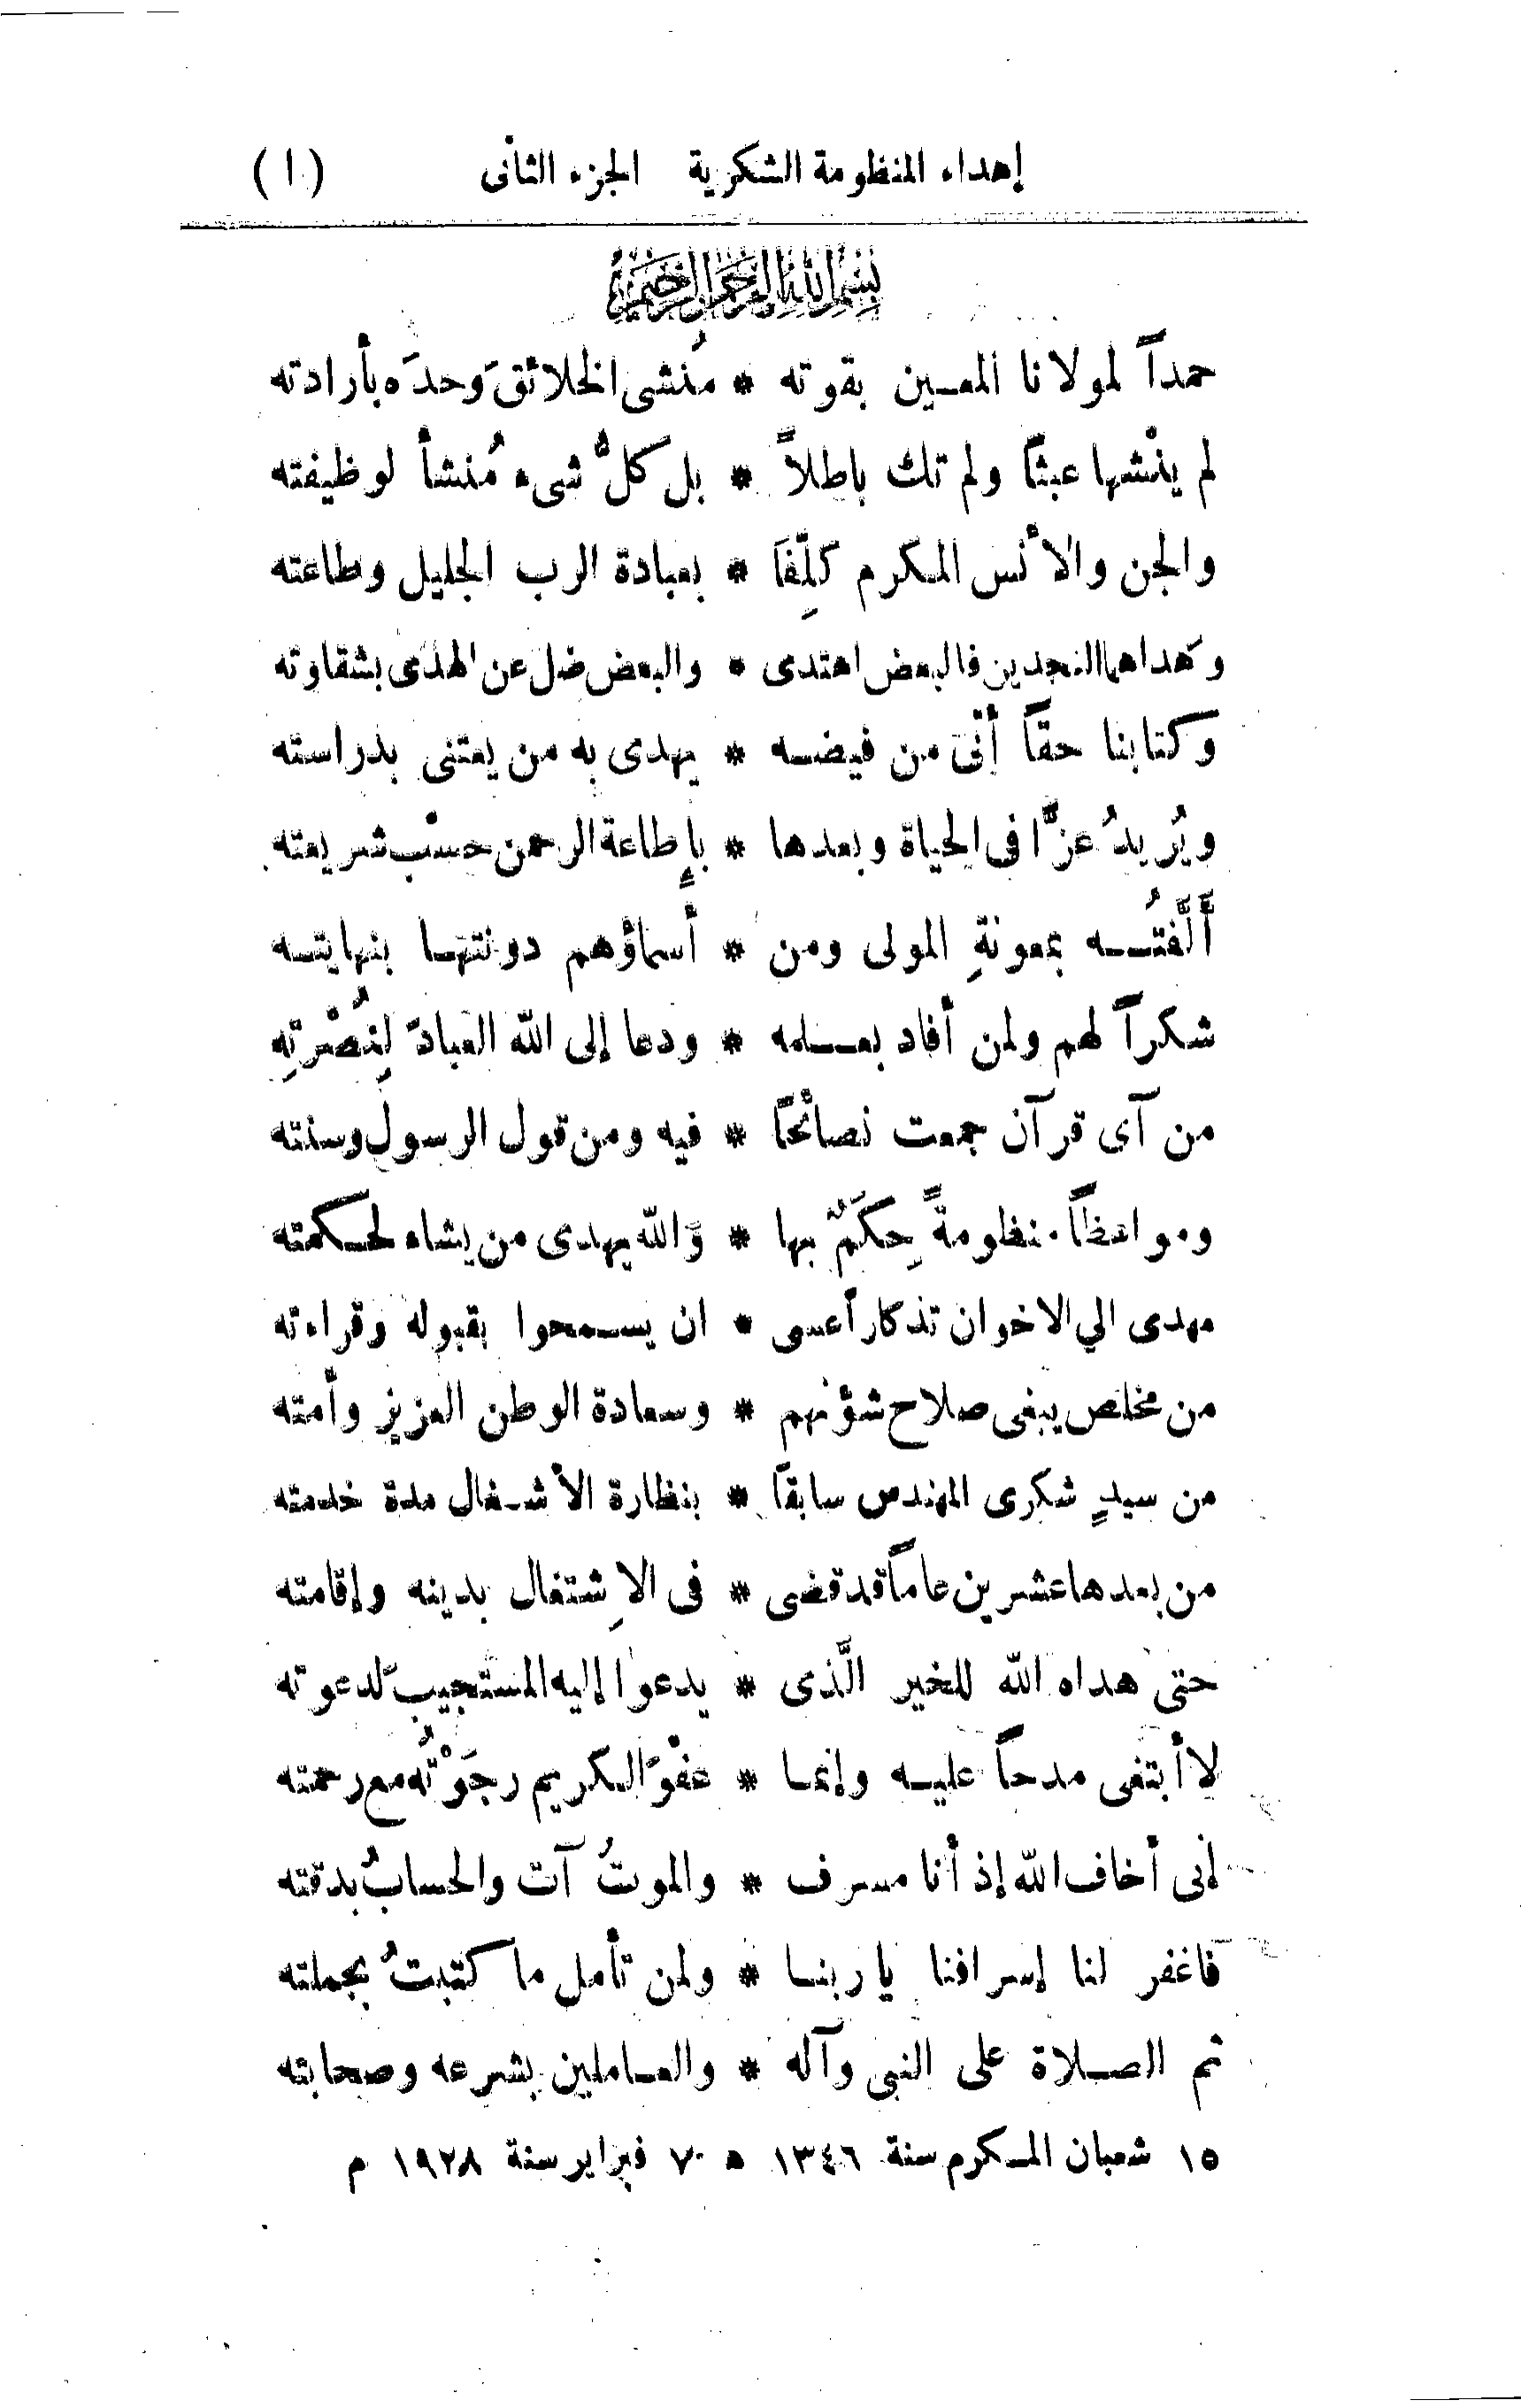 إهداء المنظومة الشكرية الجزء الثانى (ا)
بسم الله الرحمن الرحيم
حمداً لمولانا المعين بقوته * مُنشى الخلائقَ وحدَه بأرادته
لم ينْشها عبثاً ولم تك باطلاً * بل كلُّ شىء مُنشأ لوظيفته
والجن والأنس المكرم كلِّفاَ * بعبادة الرب الجليل وطاعته
وهداهما النجدين فالبعض اهتدى * والبعض ضل عن الهدَى بشقاوته
وكتابنا حقاً أتَى من فيضه * يهدى به من يعتنى بدراسته
ويُريدُ عزًّا فى الحياة وبعدها * بإطاعة الرحمن حسْب شريعته
أَلَّفتُه بمعونةِ المولى ومن * أسماؤهم دونتها بنهايته
شكراً لهم ولمن أفاد بعلمه * ودعا إلى الله العبادَ لِنُصْرتِهِ
من آى قرآن جمعت نصائحاً * فيه ومن قول الرسول وسنته
ومواعظاً منظومةً حِكَمٌ بها * وَالله يهدى من يشاء لحكمته
مهدى الي الاخوان تذكاراً عسى * ان يسمحوا بقبوله وقراءته
من مخلص يبغى صلاح شؤنهم * وسعادة الوطن العزيز وأمته
من سيدٍ شكرى المهندس سابقاً * بنظارة الأشغال مدة خدمته
من بعدها عشرين عاماً قد قضى * فى الاِشتغال بدينه وإقامته
حتى هداه الله للخير الَّذى * يدعوا إليه المستجيبَ لدعوته
لا أبتغى مدحاً عليه وإنما * عفْوَ الكريم رجَوْتُه مع رحمته
إنى أخاف الله إذ أنا مسرف * والموتُ آت والحسابُ بدقته
فاغفر لنا إسرافنا يا ربنا * ولمن تأمل ما كتبتُ بجملته
ثم الصلاة على النبى وآله * والعاملين بشرعه وصحابته
١٥ شعبان المكرم سنة ١٣٤٦ ه ٧ فبراير سنة ١٩٢٨ م